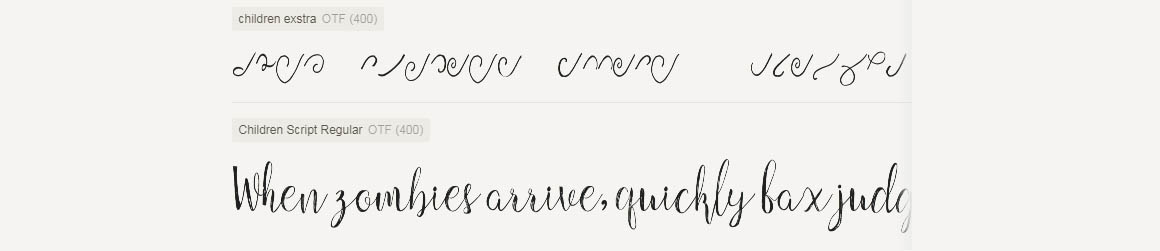 children exstra OTF (400)
Children Script Regular OTF (400)
When zombies arrive, quickly fax judg